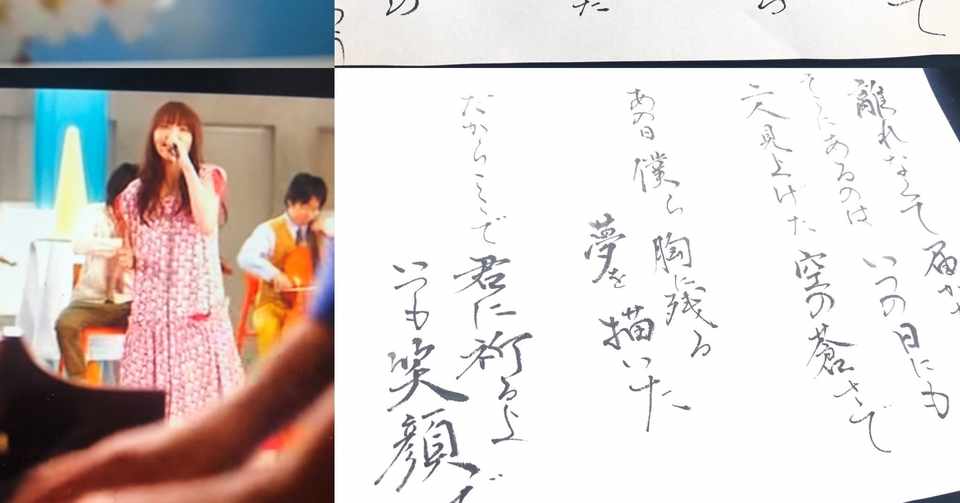 離れなくて 届か
そこにあるのは いつの日にも
二人見上げた 空の蒼さで
あの日 僕ら 胸に残る
夢を 描いた
だからここで 君に祈るよ
いつも 笑顔で